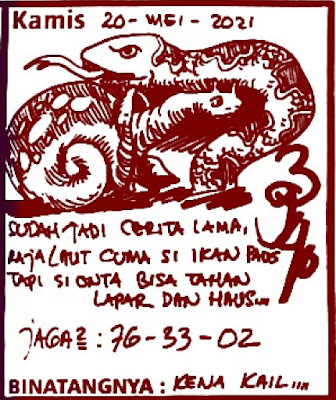 Kamis 20-MEI-2021
SUDAH JADI CERITA LAMA,
RAJA LAUT CUMA SI IKAN PAUS
TAPI SI ONTA BISA TAHAN
LAPAR DAN HAUS...
JAGA2 : 76-33-02
BINATANGNYA : KENA KAIL....